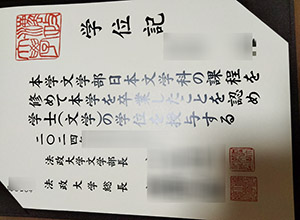 学位記
本学文学部日本文学科の課程を
修めて本学を卒業したことを認め
学士(文学)の学位を授与する
二〇二四年
法政大学文学部長
法政大学総長